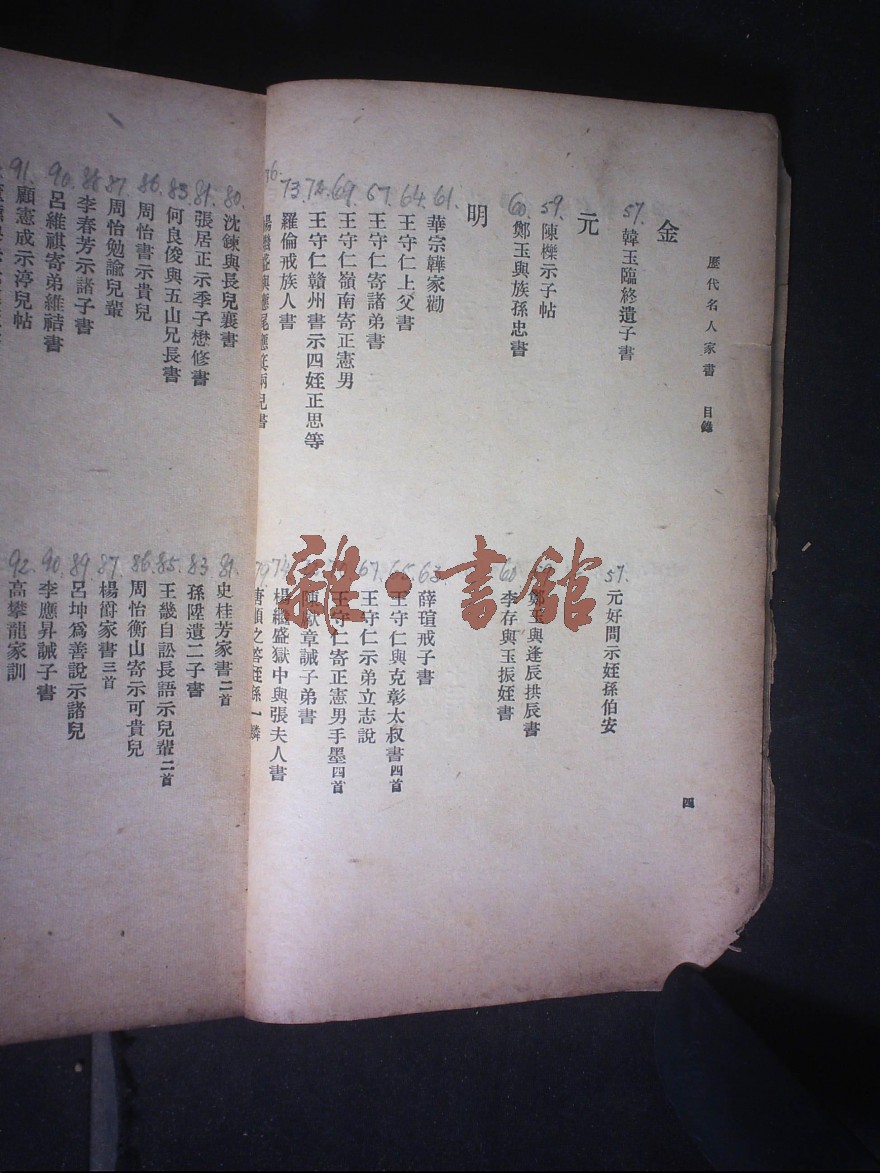 歷代名人家書 目錄
四
金
57. 韓玉臨終遺子書
57. 元好問示姪孫伯安
元
59. 陳櫟示子帖
鄭玉與逢辰拱辰書
60. 鄭玉與族孫忠書
60. 李存與玉振姪書
明
61. 華宗韡家勸
63. 薛瑄戒子書
64. 王守仁上父書
65. 王守仁與克彰太叔書四首
67. 王守仁寄諸弟書
67. 王守仁示弟立志說
69. 王守仁嶺南寄正憲男
王守仁寄正憲男手墨四首
72. 王守仁贛州書示四姪正思等
陳獻章誡子弟書
73. 羅倫戒族人書
74. 楊繼盛獄中與張夫人書
76. 楊繼盛與應尾應箕兩兒書
79. 唐順之答姪孫一麐
80. 沈鍊與長兒襄書
81. 史桂芳家書二首
81. 張居正示季子懋修書
83. 孫陞遺二子書
83. 何良俊與五山兄長書
85. 王畿自訟長語示兒輩二首
86. 周怡書示貴兒
86. 周怡衡山寄示可貴兒
87. 周怡勉諭兒輩
87. 楊爵家書三首
88. 李春芳示諸子書
89. 呂坤為善說示諸兒
90. 呂維祺寄弟維祮書
90. 李應昇誡子書
91. 顧憲成示淳兒帖
92. 高攀龍家訓
雜·書館